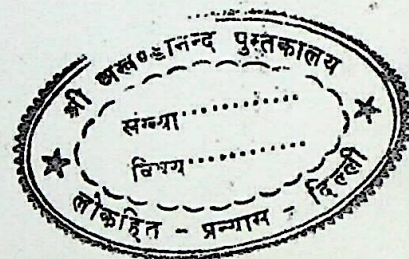 श्री अखण्डानन्द पुस्तकालय
संख्या.............
विषय.............
लोकहित - प्रन्यास - दिल्ली